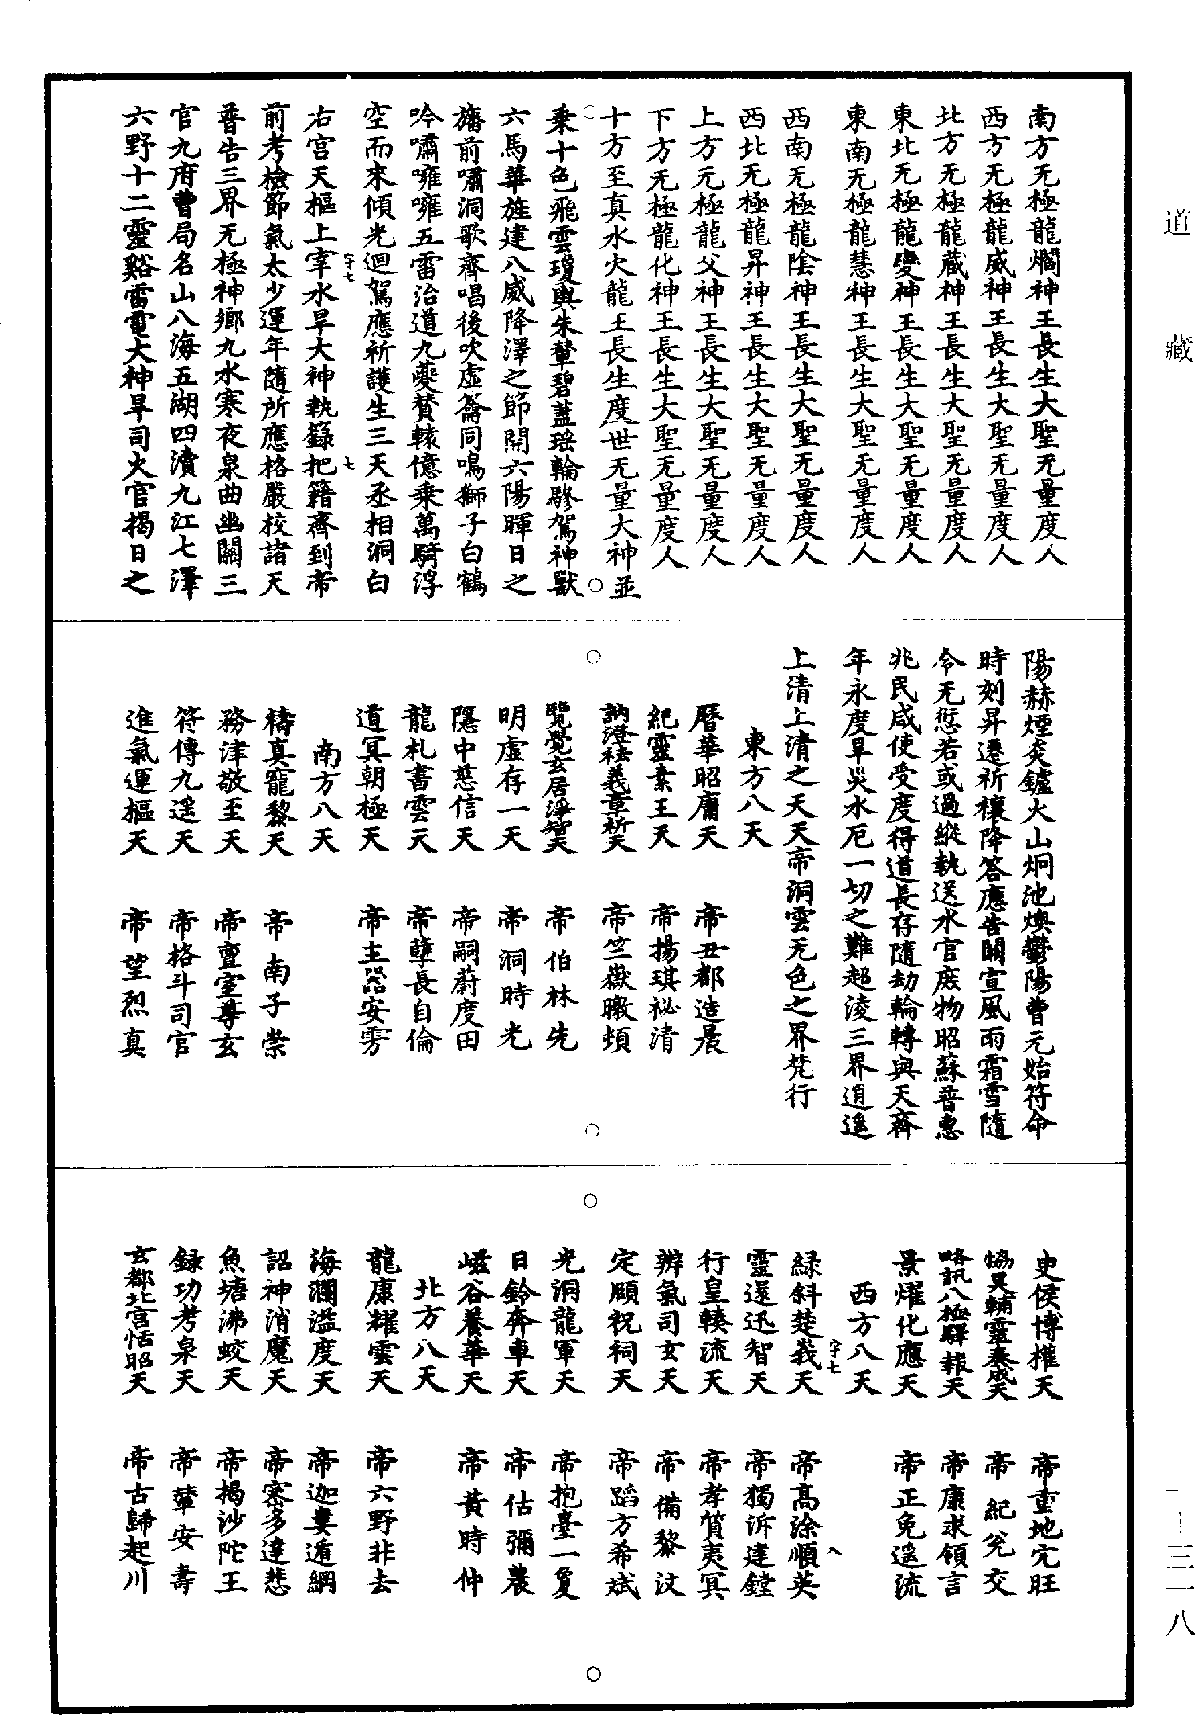 道藏
三一八
南方无極龍爓神王長生大聖无量度人
西方无極龍威神王長生大聖无量度人
北方无極龍藏神王長生大聖无量度人
東北无極龍變神王長生大聖无量度人
東南无極龍慧神王長生大聖无量度人
西南无極龍陰神王長生大聖无量度人
西北无極龍昇神王長生大聖无量度人
上方无極龍父神王長生大聖无量度人
下方无極龍化神王長生大聖无量度人
十方至真水火龍王長生度世无量大神並
乗十色飛雲瓊輿朱輦碧蓋瑶輪驂駕神獸
六馬華旌建八威降澤之節開六陽暉日之
旛前嘯洞歌齊唱後吹虚籥同鳴獅子白鶴
吟嘯噰噰五雷治道九夔賛轅億乗萬騎浮
空而來傾光迴駕應祈護生三天丞相洞白
右宫天樞上宰水旱大神執籙把籍齊到帝
前考檢節氣太少運年隨所應格嚴校諸天
普告三界无極神鄉九水寒夜泉曲幽關三
官九府曹局名山八海五湖四瀆九江七澤
六野十二靈谿雷電大神旱司火官揭日之
陽赫煙炎鑪火山炯池燠鬱陽曹元始符命
時刻昇遷祈禳降荅應告開宣風雨霜雪隨
令无愆若或過縱執送水官庶物昭蘇普惠
兆民咸使受度得道長存隨劫輪轉與天齊
年永度旱災水厄一切之難超淩三界逍遥
上清上清之天天帝洞雲无色之界梵行
東方八天
曆華昭庸天 帝丑都造晨
紀靈素王天 帝揚琪祕清
訥澄祛義章祈天 帝竺嶽暾頊
覽覺玄居淨智天 帝伯林先
明虚存一天 帝洞時光
隱中慈信天 帝嗣蔚度田
龍札書雲天 帝孽長自倫
道冥朝極天 帝主器安雱
南方八天
檮真寵黎天 帝南子崇
務津敬至天 帝亶室尊玄
符傳九遥天 帝格斗司官
進氣運樞天 帝望烈真
史侯博權天 帝重地宂旺
協昊輔靈泰成天 帝紀兊交
略訊八極驛報天 帝康求領言
景燿化應天 帝正免遥流
西方八天
緑斜楚義天 帝高涂順英
靈選迅智天 帝獨泝建鏜
行皇輳流天 帝孝質夷冥
辨氣司玄天 帝備黎汶
定願祝祠天 帝蹈方希斌
光洞龍軍天 帝抱臺一夐
日鈴奔車天 帝估彌農
嵫谷養華天 帝黄時仲
北方八天
龍康耀雲天 帝六野非去
海瀾濫度天 帝迦婁遁綱
詔神消魔天 帝塞多達悲
魚塘沸蛟天 帝揭沙陀王
録功考泉天 帝輦安壽
玄都北宫恬昭天 帝古歸起川